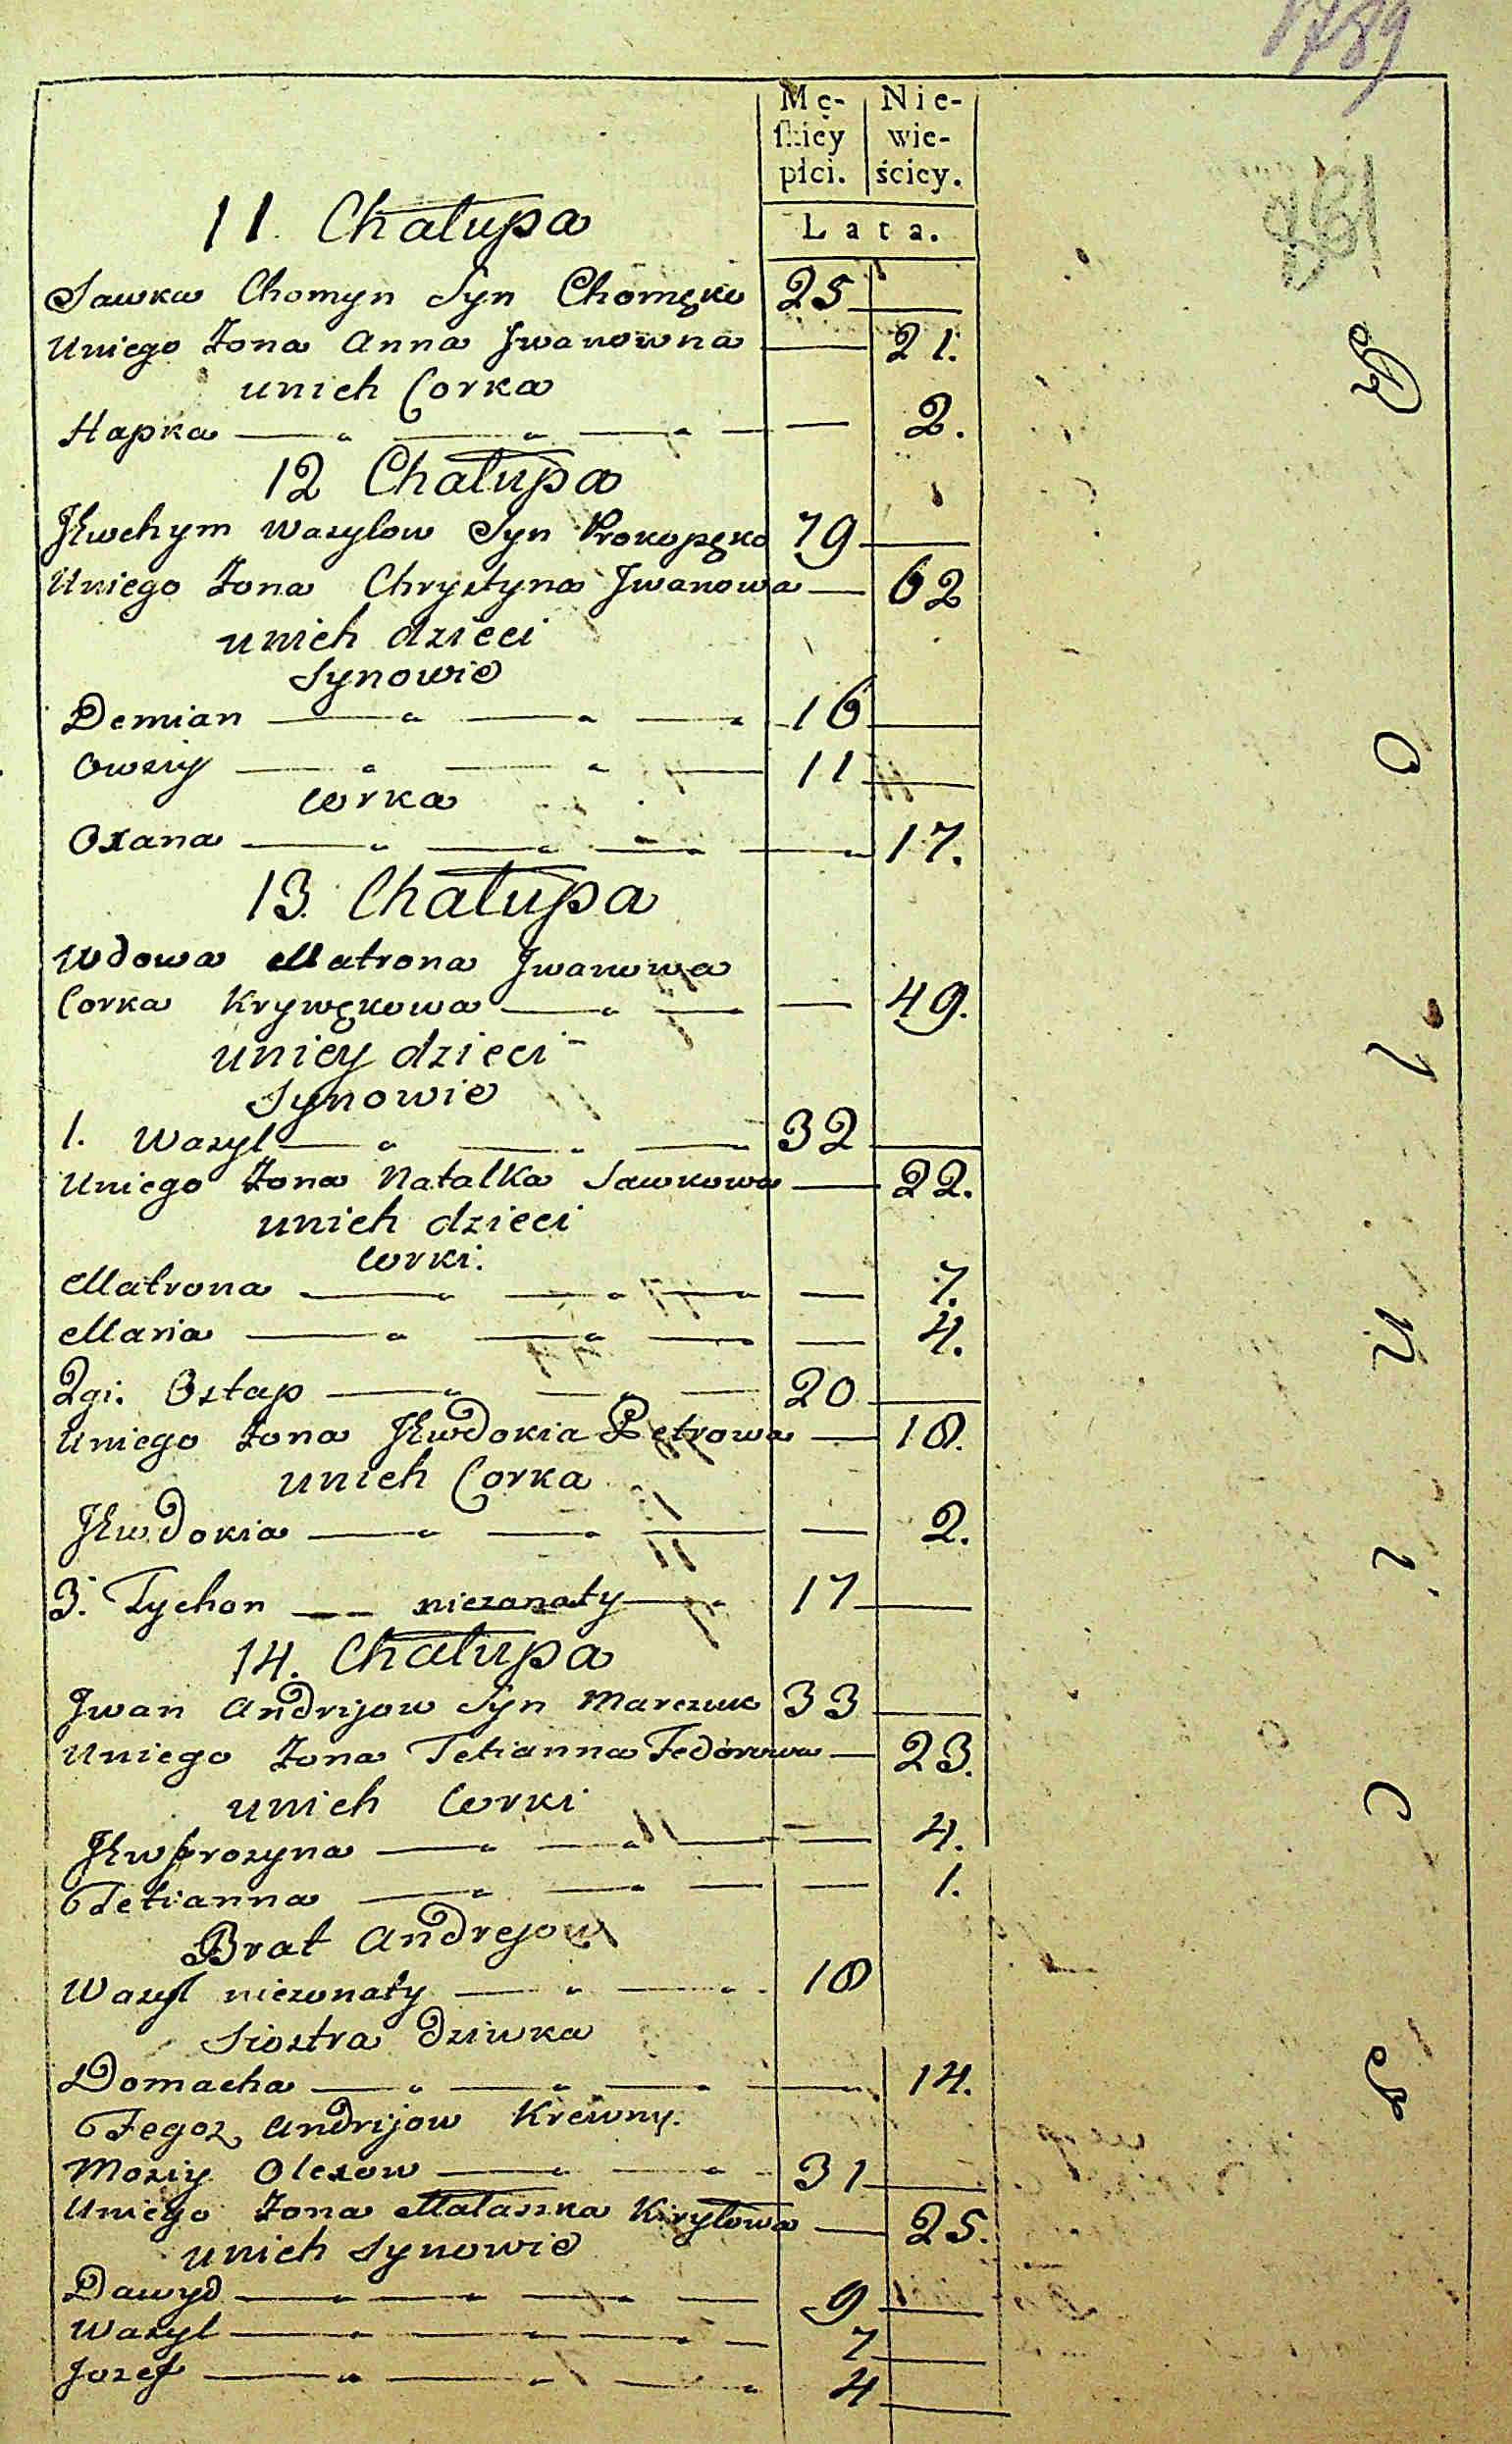 1789
Mę- Nie-
skiey wie-
płci. ścicy.
Lata.
11. Chałupa
Sawka Chomyn Syn Chomęko 25
Uniego Żona Anna Jwanowna 21.
unich Corka
Hapka 2.
12 Chałupa
Jewchym Wasylow Syn Prokopęko 79
Uniego Żona Chrystyna Jwanowa 62
unich dzieci
Synowie
Demian 16
Owsiy 11
Corka
Oxana 17.
13. Chałupa
Wdowa Matrona Jwanowa
Corka Krywękowa 49.
uniey dzieci
Synowie
1. Wasyl 32
Uniego Żona Natalka Sawkowa 22.
unich dzieci
Corki.
Matrona 7.
Maria 4.
2gi. Ostap 20
Uniego Żona Jewdokia Petrowa 18.
unich Corka
Jewdokia 2.
3. Tychon nieżonaty 17
14. Chałupa
Jwan Andrijow Syn Marczuk 33
Uniego Żona Tetianna Fedorowa 23.
unich Corki
Jewfrozyna 4.
Tetianna 1.
Brat Andrejow
Wasyl nieżonaty 18
Siostra dziwka
Domacha 14.
Tegoż Andrijow Krewny.
Mosiy Olexow 31
Uniego Żona Małaszka Kiryłowa 25.
unich Synowie
Dawyd 9
Wasyl 7
Jozef 4